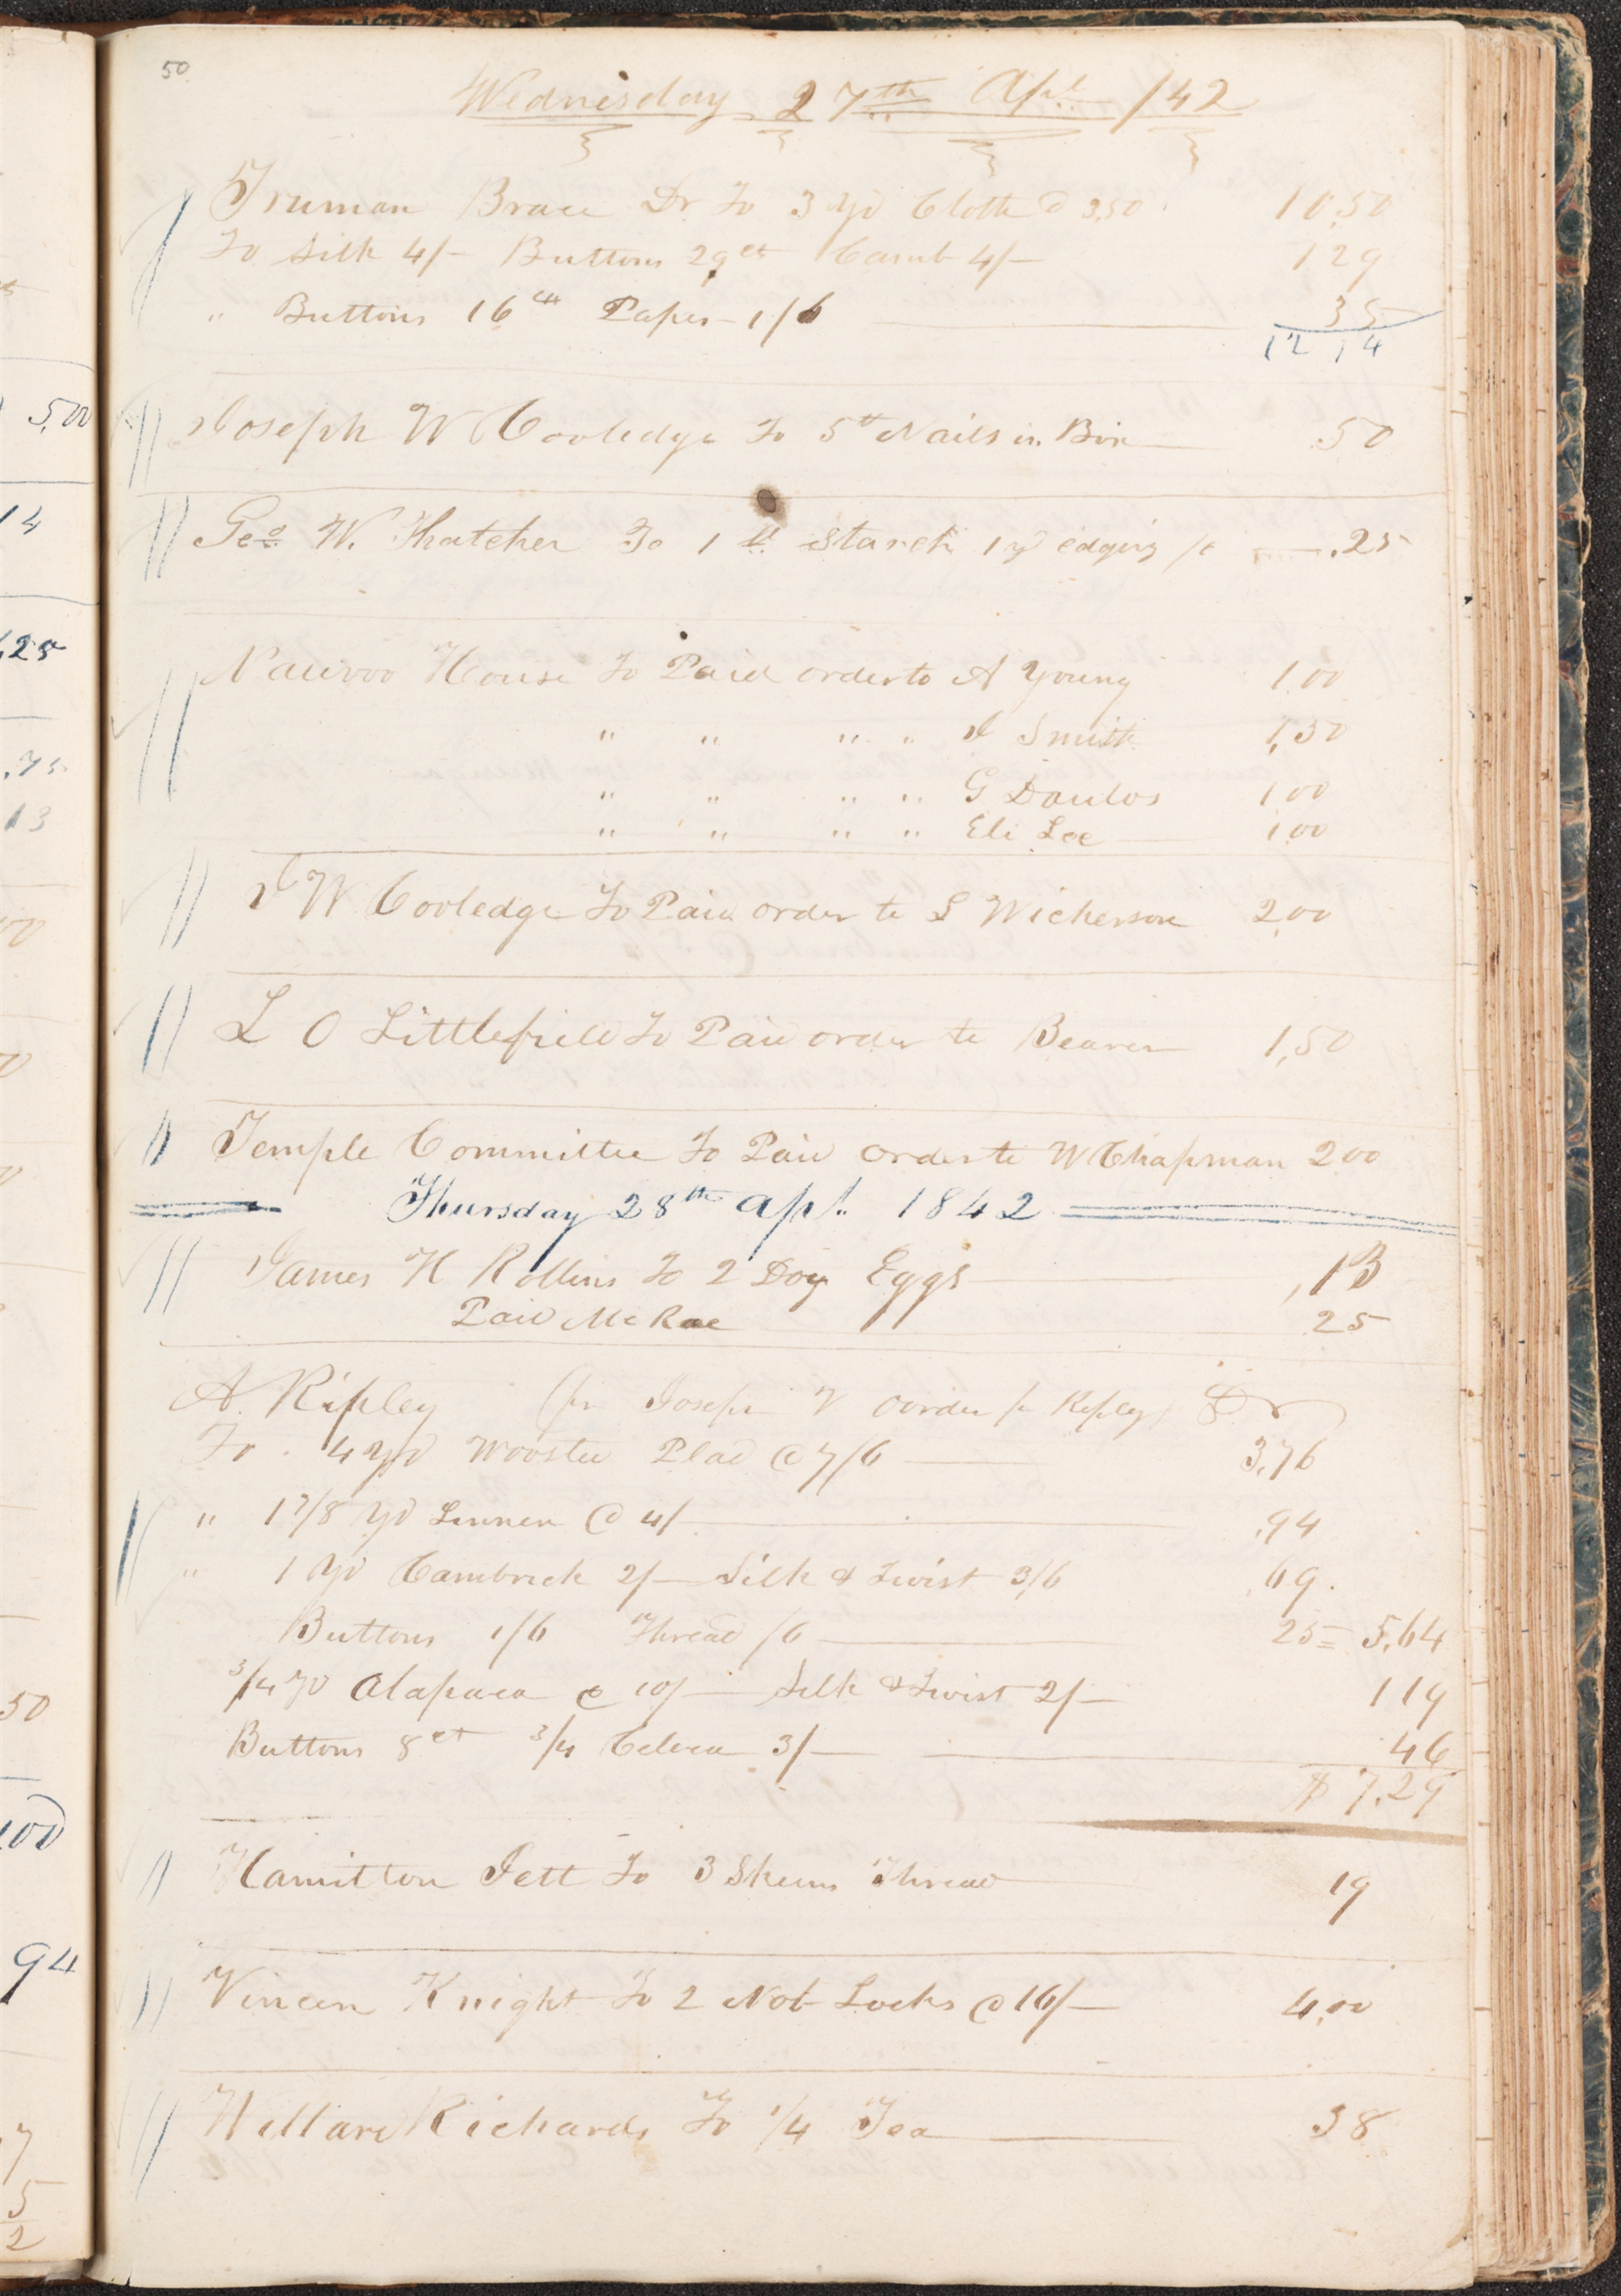 50
Wednesday 27th Apl /42
Truman Brace Dr To 3 yd Cloth @ 3,50 10.50
To Silk 4/- Buttons 29ct Camb 4/- 129
" Buttons 16ct Paper 1/6 35
12 14
5,00
Joseph W Coolidge To 5 lb Nails in Box .50
14
Geo W. Thatcher To 1 lb Starch 1 yd edging /c .25
,25
Nauvoo House To Paid order to A Young 1.00
" " " " I Smith 1,50
.75
" " " " G Daulos 1,00
13
" " " " Eli Lee 1,00
J W Cooledge To Paid order to L Wickerson 2,00
L O Littlefield To Paid order to Bearer 1,50
Temple Committee To Paid order to W Chapman 2 00
Thursday 28th Apl. 1842
James H Rollins To 2 Doz Eggs ,13
Paid McRae 25
A. Ripley (pr Joseph order pr Ripley) Dr
To 4 yd Woosted Plad @ 7/6 3,76
" 1 7/8 yd Linnen @ 4/ ,94
" 1 yd Cambrick 2/- Silk & Twist 3/6 ,69.
Buttons 1/6 Thread /6 25 = 5,64
3/4 yd Alapaca @ 10/- Silk & Twist 2/- 1 19
50
Buttons 8ct 3/4 Celecia 3/- 46
$ 7,29
100
Hamilton Jett To 3 Skeins Thread 19
94
Vincen Knight To 2 Nob Locks @ 16/- 4,00
Willard Richards To 1/4 Tea 38
7
5
2